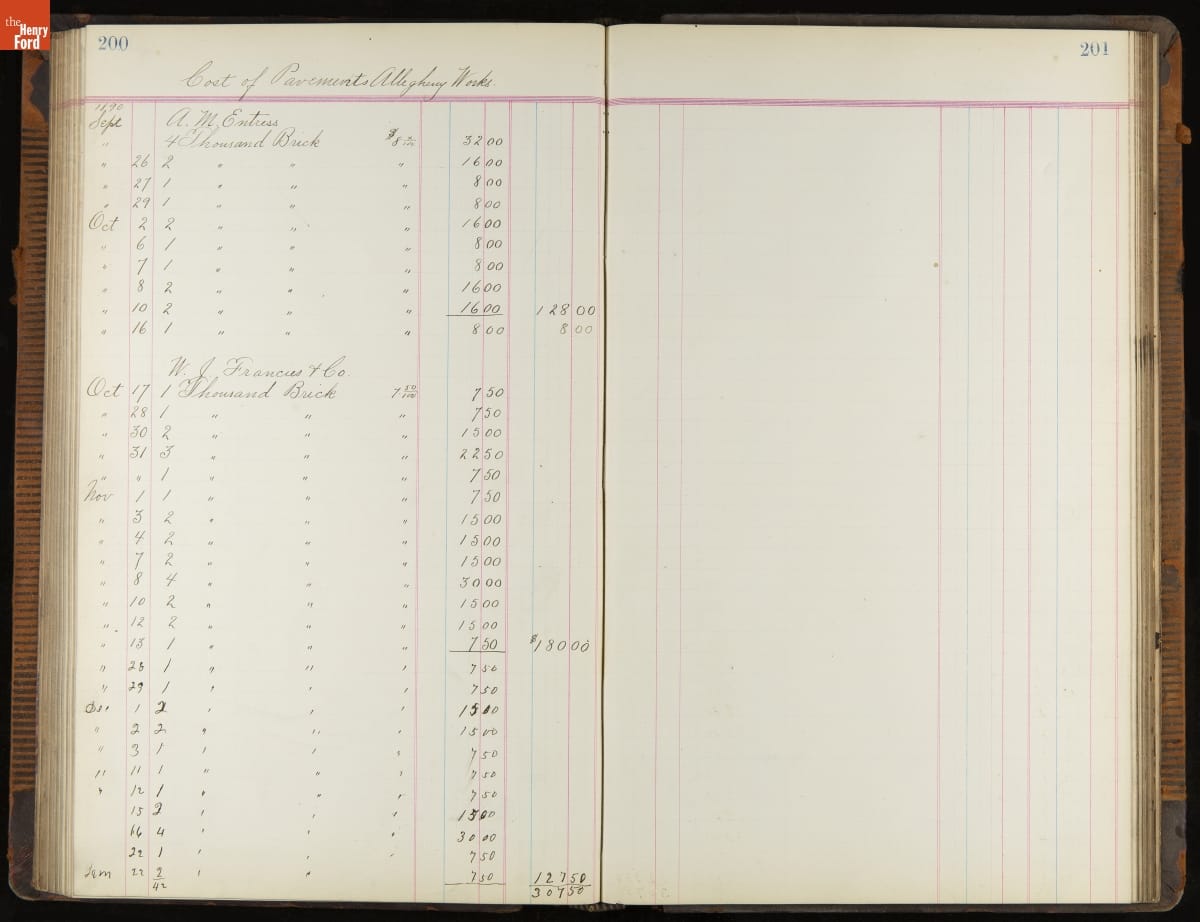 the Henry Ford
200
201
Cost of Pavements Allegheny Works.
1890
Sept A. M. Entress
" 4 Thousand Brick $8 0/100 32 00
" 26 2 " " " 16 00
" 27 1 " " " 8 00
" 29 1 " " " 8 00
Oct 2 2 " " " 16 00
" 6 1 " " " 8 00
" 7 1 " " " 8 00
" 8 2 " " " 16 00
" 10 2 " " " 16 00 128 00
" 16 1 " " " 8 00 8 00
W. J. Francies & Co.
Oct 17 1 Thousand Brick 7 50/100 7 50
" 28 1 " " " 7 50
" 30 2 " " " 15 00
" 31 3 " " " 22 50
" " 1 " " " 7 50
Nov 1 1 " " " 7 50
" 3 2 " " " 15 00
" 4 2 " " " 15 00
" 7 2 " " " 15 00
" 8 4 " " " 30 00
" 10 2 " " " 15 00
" 12 2 " " " 15 00
" 13 1 " " " 7 50 $180 00
" 28 1 " " " 7 50
" 29 1 " " " 7 50
Dec 1 2 " " " 15 00
" 2 2 " " " 15 00
" 3 1 " " " 7 50
" 11 1 " " " 7 50
" 12 1 " " " 7 50
15 2 " " " 15 00
16 4 " " " 30 00
22 1 " " " 7 50
22 2 " " 7 50 127 50
42 307 50